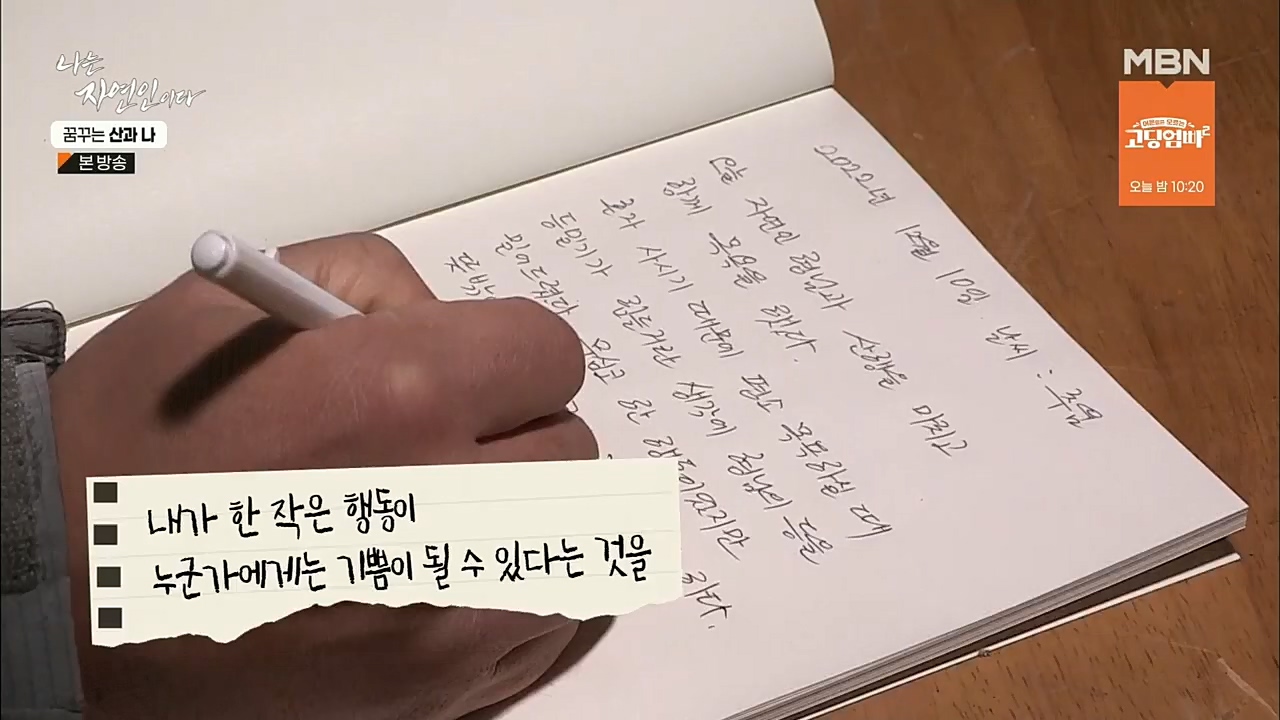 나는
자연인이다
꿈꾸는 산과 나
본 방송
MBN
어른들은 모르는
고딩엄빠2
오늘 밤 10:20
2022년 10일 날씨 : 흐림
오늘 자연인 형님과 산행을 마치고
함께 목욕을 했다.
혼자 사시기 때문에 평소 목욕하실 때
등밀기가 힘들거란 생각에 형님의 등을
밀어드렸다.
한 행동이었지만
내가 한 작은 행동이
누군가에게는 기쁨이 될 수 있다는 것을